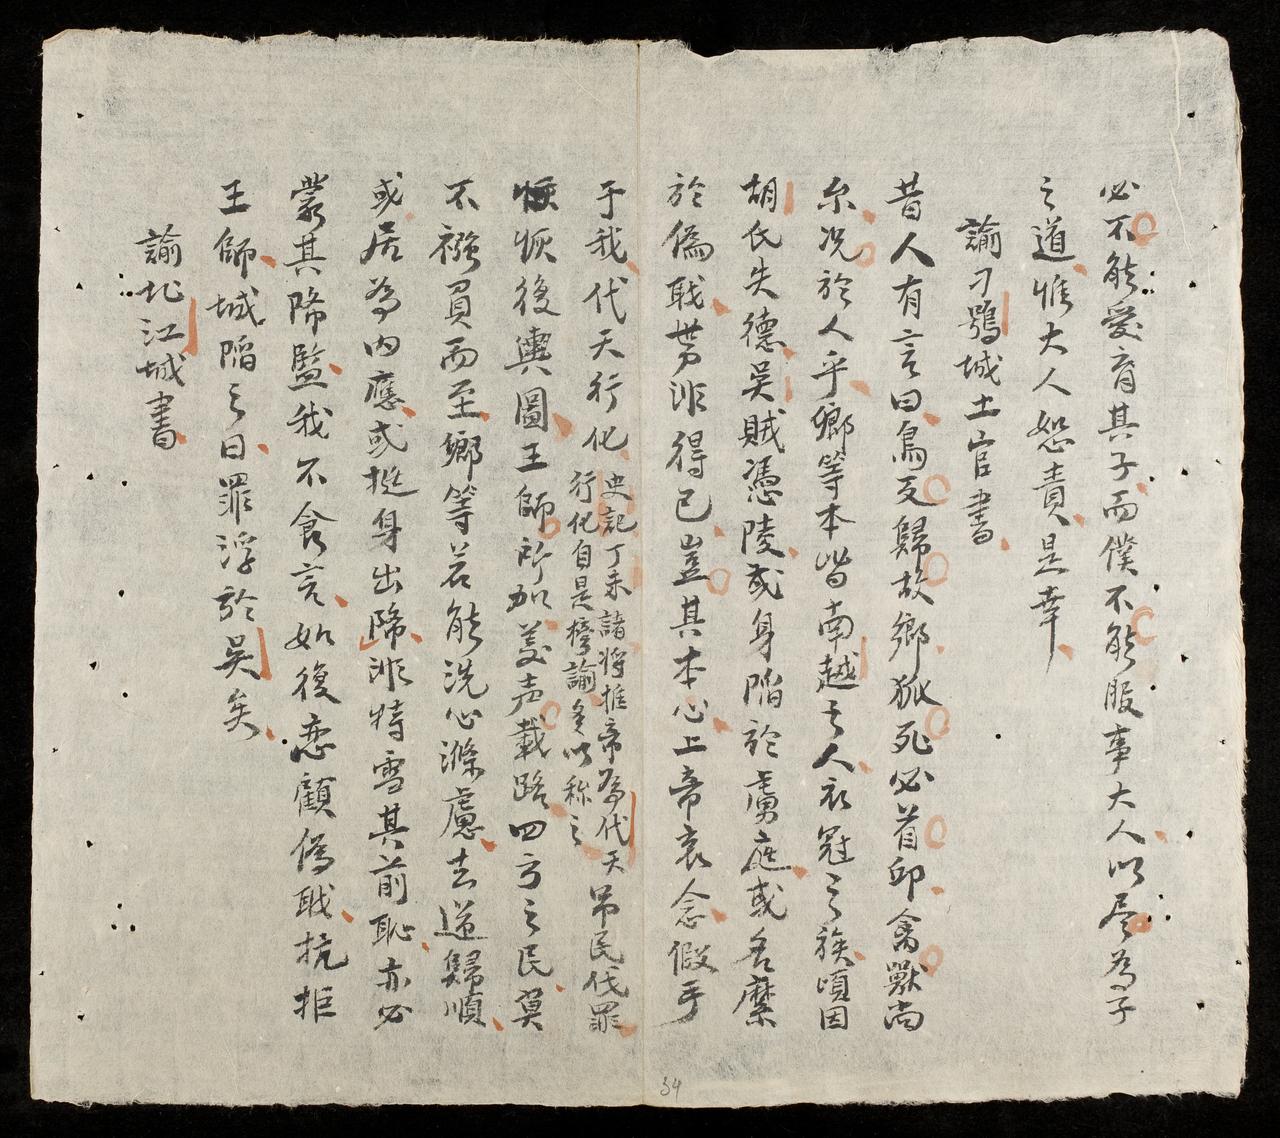 必不能愛育其子而僕不能服事大人以尽為子
之道惟大人恕責是幸
諭刁鷂城土官書
昔人有言曰鳥反歸故鄉狐死必首邱禽獸尚
尔况於人乎鄉等本皆南越之人衣冠之族頃因
胡氏失德吳賊憑陵或身陷於虜庭或名縻
於偽職势非得已豈其本心上帝哀念假手
于我代天行化
史記丁未諸将推帝為代天
行化自是榜諭多以称之
吊民伐罪
恢復輿圖王師所加羙声載路四方之民莫
不襁負而至鄉等若能洗心滌慮去逆歸順
或居為内應或挺身出降非特雪其前恥亦必
蒙其降監我不食言如復恋顧偽职抗拒
王師城陷之日罪浮於吳矣
諭北江城書
34